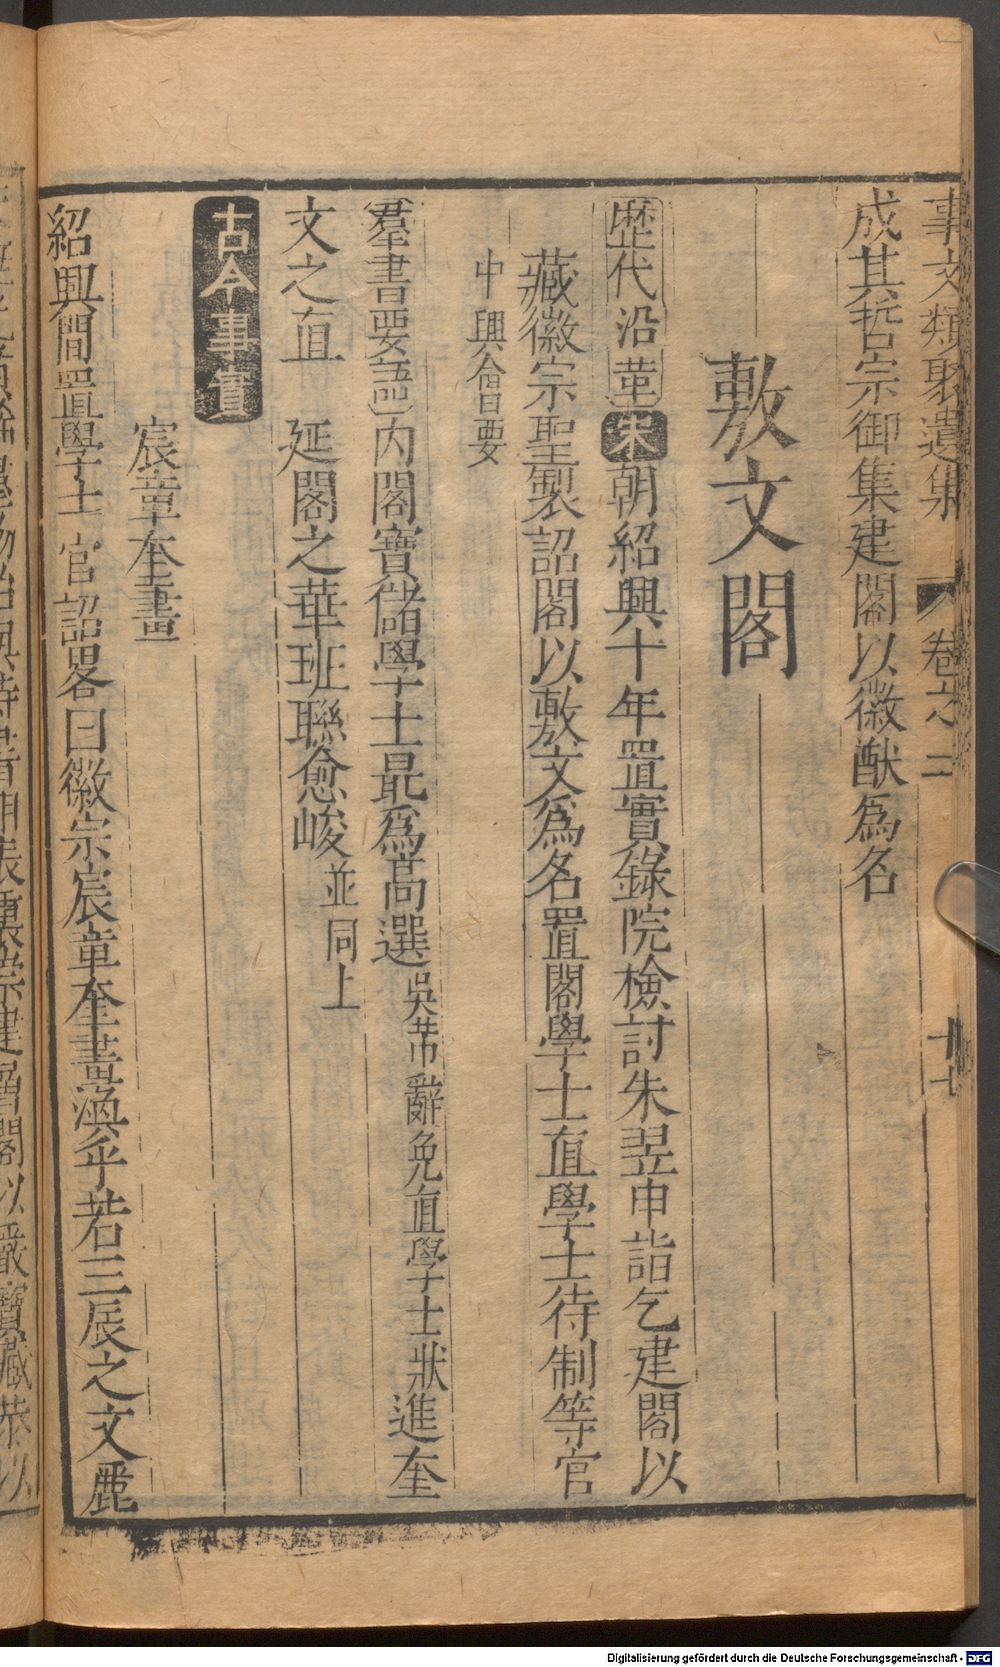 事文類聚遺集 卷之二 十七
成其哲宗御集建閣以徽猷爲名
敷文閣
歷代沿革 宋朝紹興十年置實錄院檢討朱翌申詣乞建閣以
藏徽宗聖製詔閣以敷文爲名置閣學士直學士待制等官
中興會要
羣書要語 內閣寶儲學士最爲高選吳芾辭免直學士狀進奎
文之直 延閣之華班聯愈峻並同上
古今事實
宸章奎畫
紹興間置學士官詔畧曰徽宗宸章奎畫渙乎若三辰之文麗
Digitalisierung gefördert durch die Deutsche Forschungsgemeinschaft - DFG